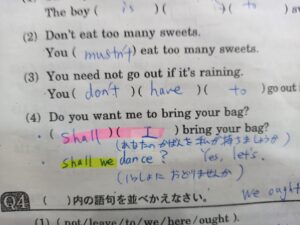 The boy ( is )( )( to ) s
(2) Don't eat too many sweets.
You ( mustn't ) eat too many sweets.
(3) You need not go out if it's raining.
You ( don't )( have )( to ) go out i
(4) Do you want me to bring your bag?
・( Shall )( I ) bring your bag?
(あなたのかばんを私が持ちましょうか)
・shall we dance? Yes, let's.
(いっしょにおどりませんか)
Q4 ( )内の語句を並べかえなさい。
We ought
(1) ( not / leave / to / we / here / ought ).